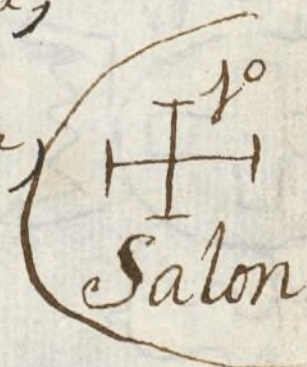 1º
Salon